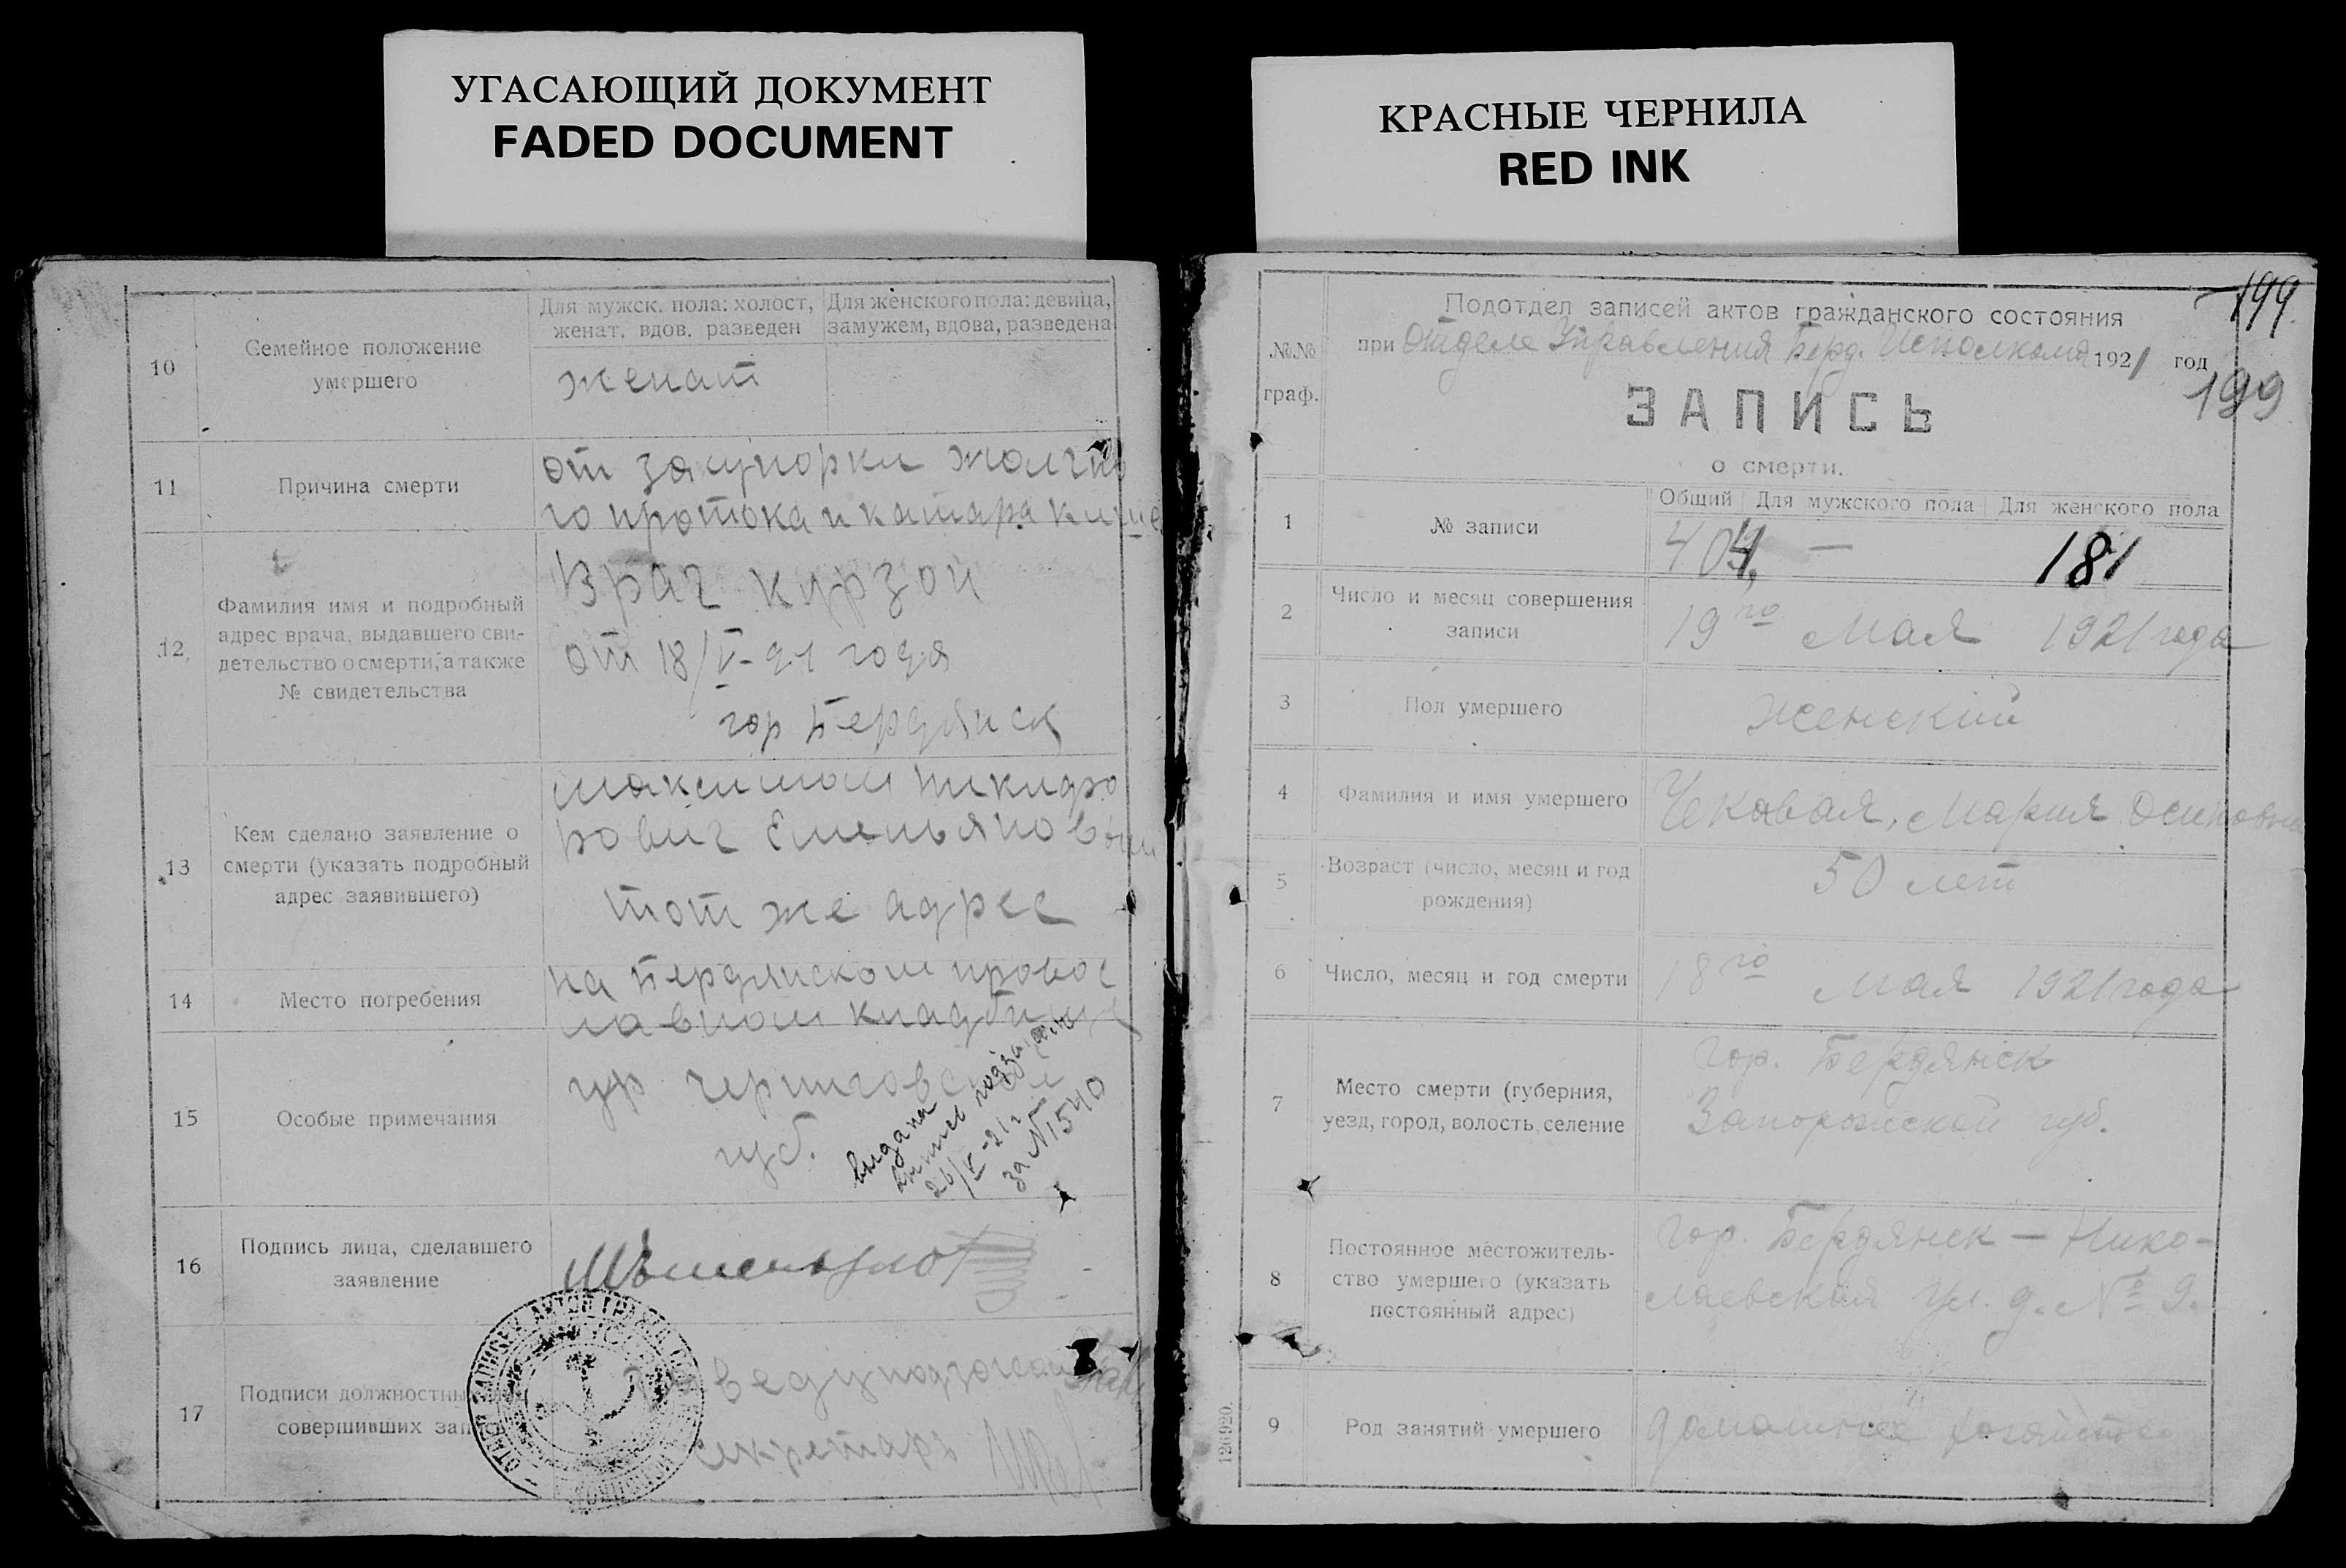 УГАСАЮЩИЙ ДОКУМЕНТ
FADED DOCUMENT
КРАСНЫЕ ЧЕРНИЛА
RED INK
10
Семейное положение
умершего
Для мужск. пола: холост,
женат, вдов. разведен
Для женского пола: девица,
замужем, вдова, разведена
женат
11
Причина смерти
от закупорки желчно
го протока и катара кише
12
Фамилия имя и подробный
адрес врача, выдавшего сви-
детельство о смерти, а также
№ свидетельства
Врач Курзон
от 18/V-21 года
гор Бердянск
13
Кем сделано заявление о
смерти (указать подробный
адрес заявившего)
Максимом Никифо
рович Емельяновым
тот же адрес
14
Место погребения
на Бердянском правос
лавном кладбище
15
Особые примечания
ур Черниговской
губ.
выдана
26/V-21 г
за №1540
16
Подпись лица, сделавшего
заявление
17
Подписи должностных
совершивших запись
секретарь
199
199
№№
граф.
Подотдел записей актов гражданского состояния
при Отделе Управления Берд. Исполкома 1921 год
ЗАПИСЬ
о смерти.
1
№ записи
Общий
Для мужского пола
Для женского пола
404
—
181
2
Число и месяц совершения
записи
19го Мая 1921 года
3
Пол умершего
Женский
4
Фамилия и имя умершего
Чековая, Мария Осиповна
5
Возраст (число, месяц и год
рождения)
50 лет
6
Число, месяц и год смерти
18го Мая 1921 года
7
Место смерти (губерния,
уезд, город, волость, селение
Гор. Бердянск
Запорожской губ.
8
Постоянное местожитель-
ство умершего (указать
постоянный адрес)
Гор. Бердянск — Нико-
лаевская ул. д. № 9.
9
Род занятий умершего
домашнее хозяйство
126920.